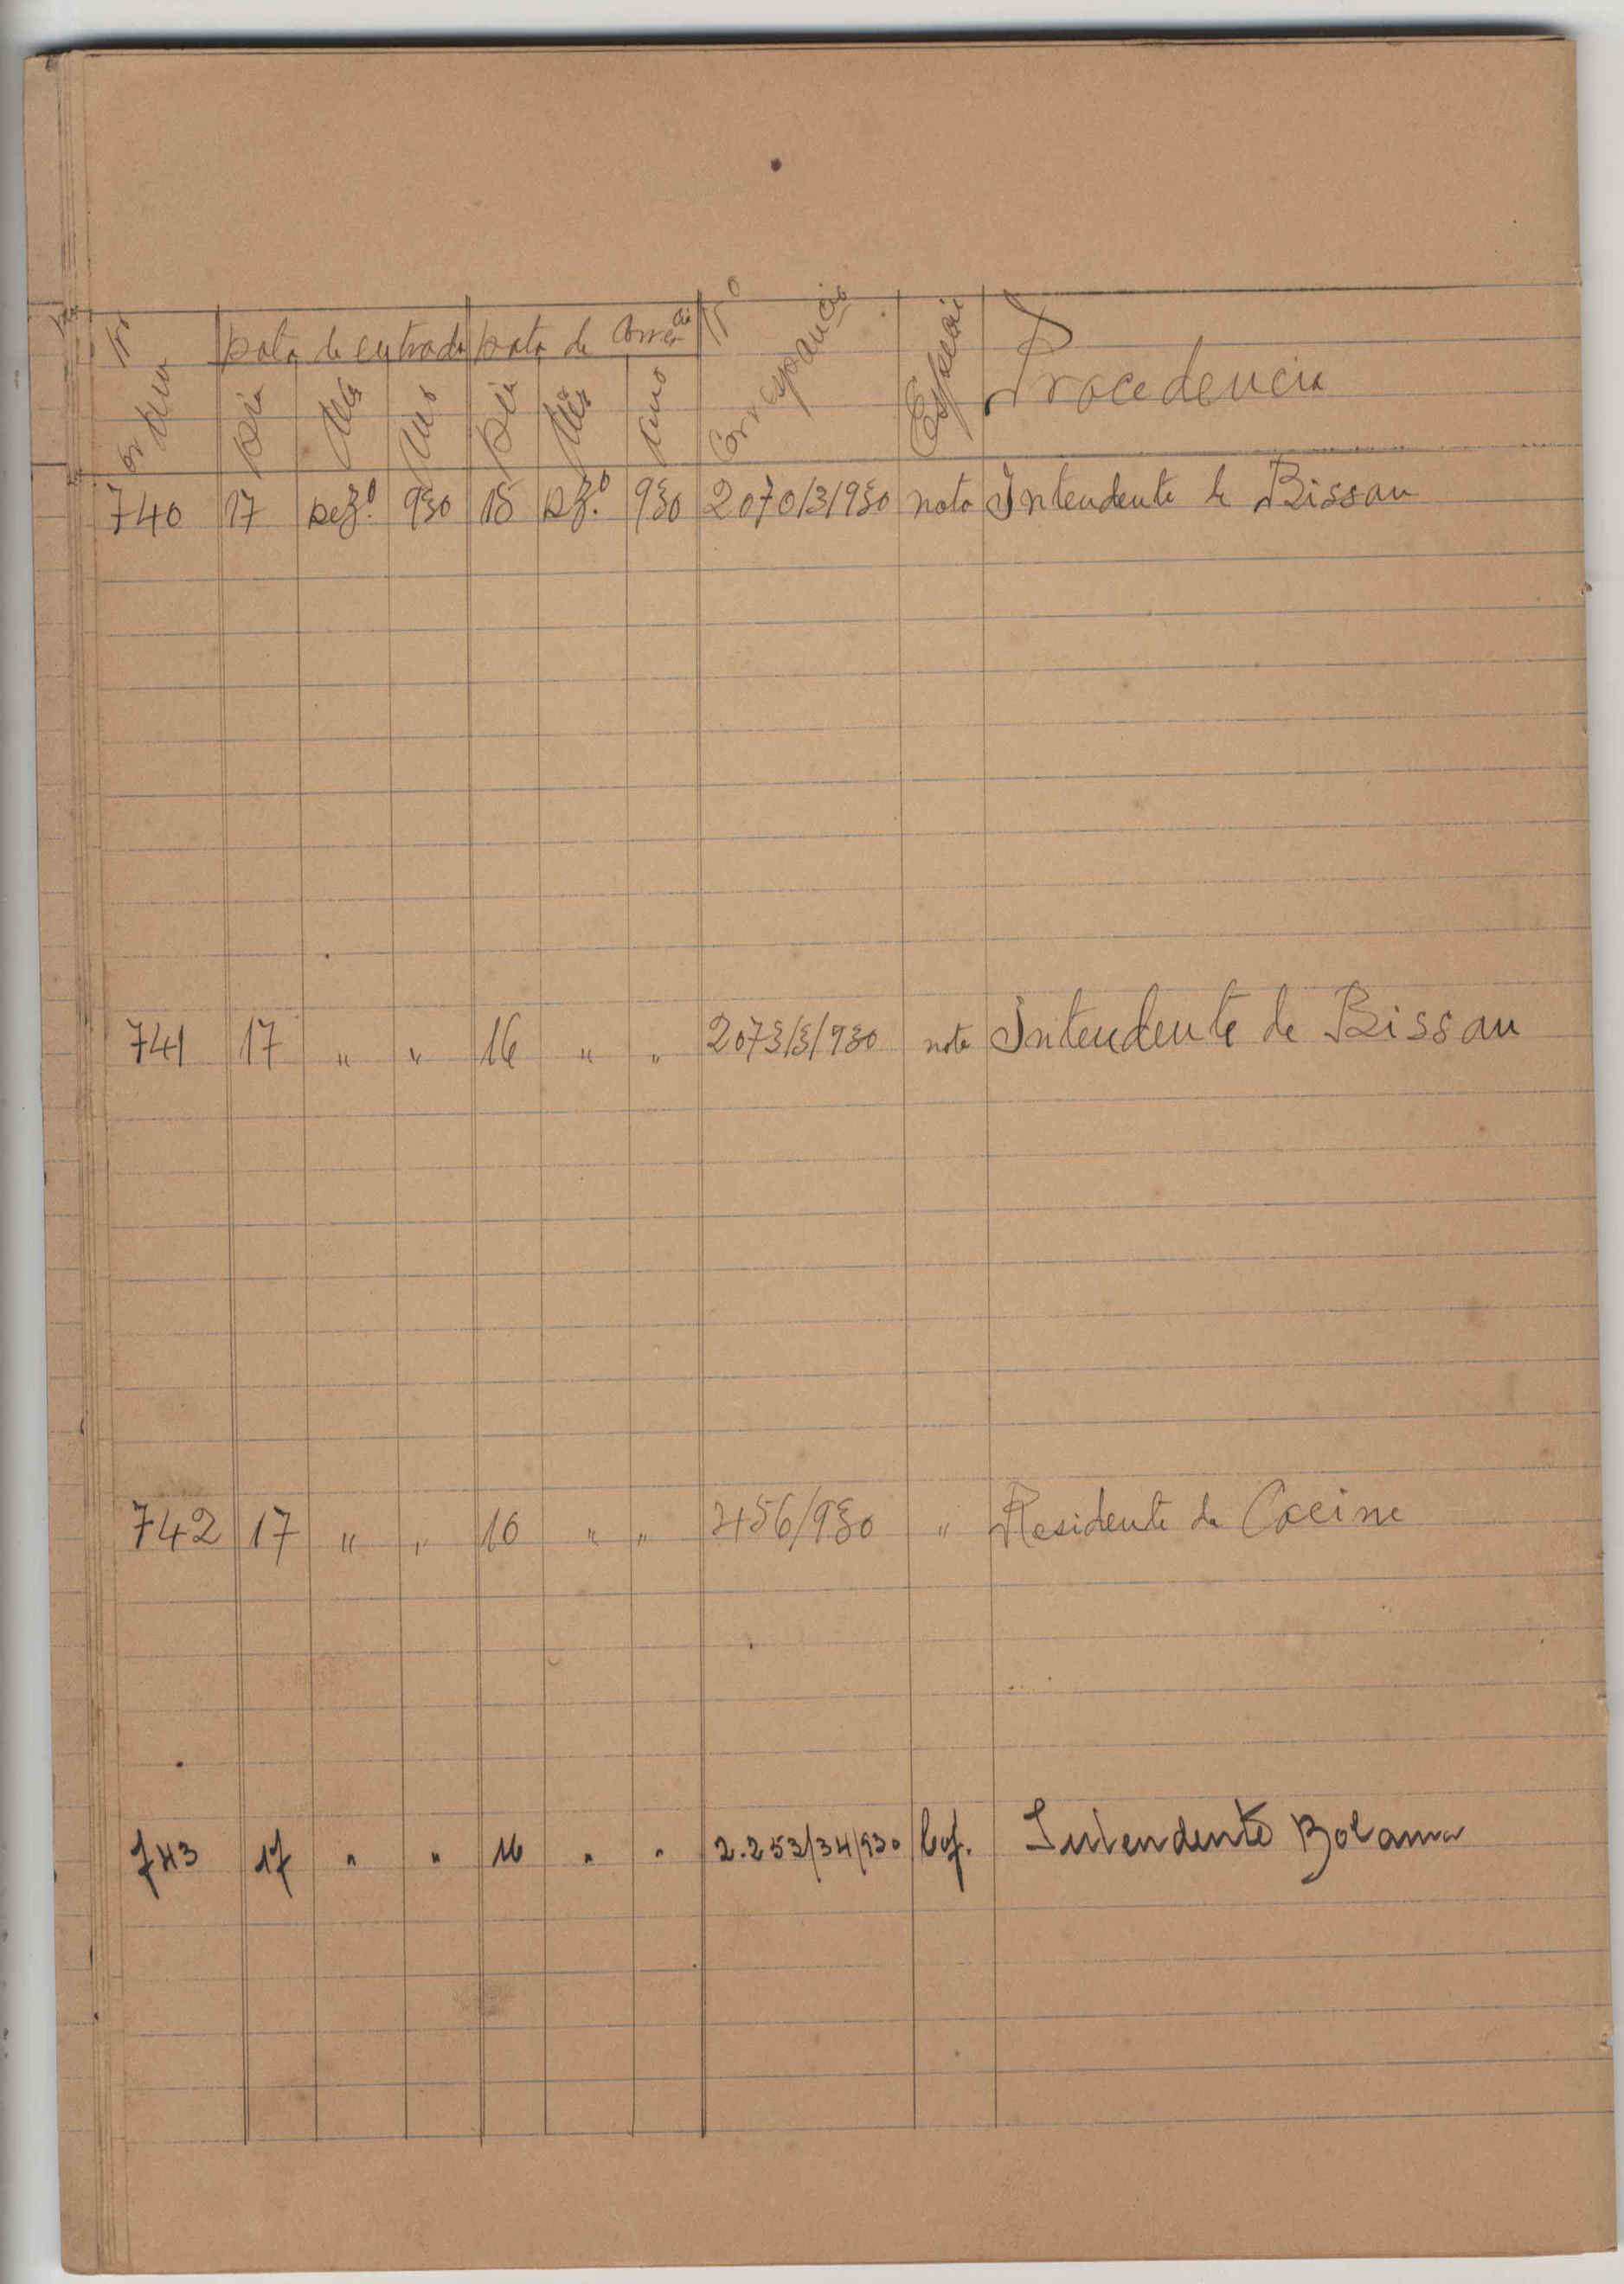 Nº ordem Data de entrada Data de Corrcia Nº Correspancia Especie Procedencia
Dia Mês Ano Dia Mês Ano
740 17 Dezº. 930 15 Dzº. 930 2070/3/930 nota Intendente de Bissau
741 17 " " 16 " " 2073/3/930 nota Intendente de Bissau
742 17 " " 10 " " 456/930 " Residente de Cacine
743 17 " " 16 " " 2.253/34/930 Cof. Intendente Bolama